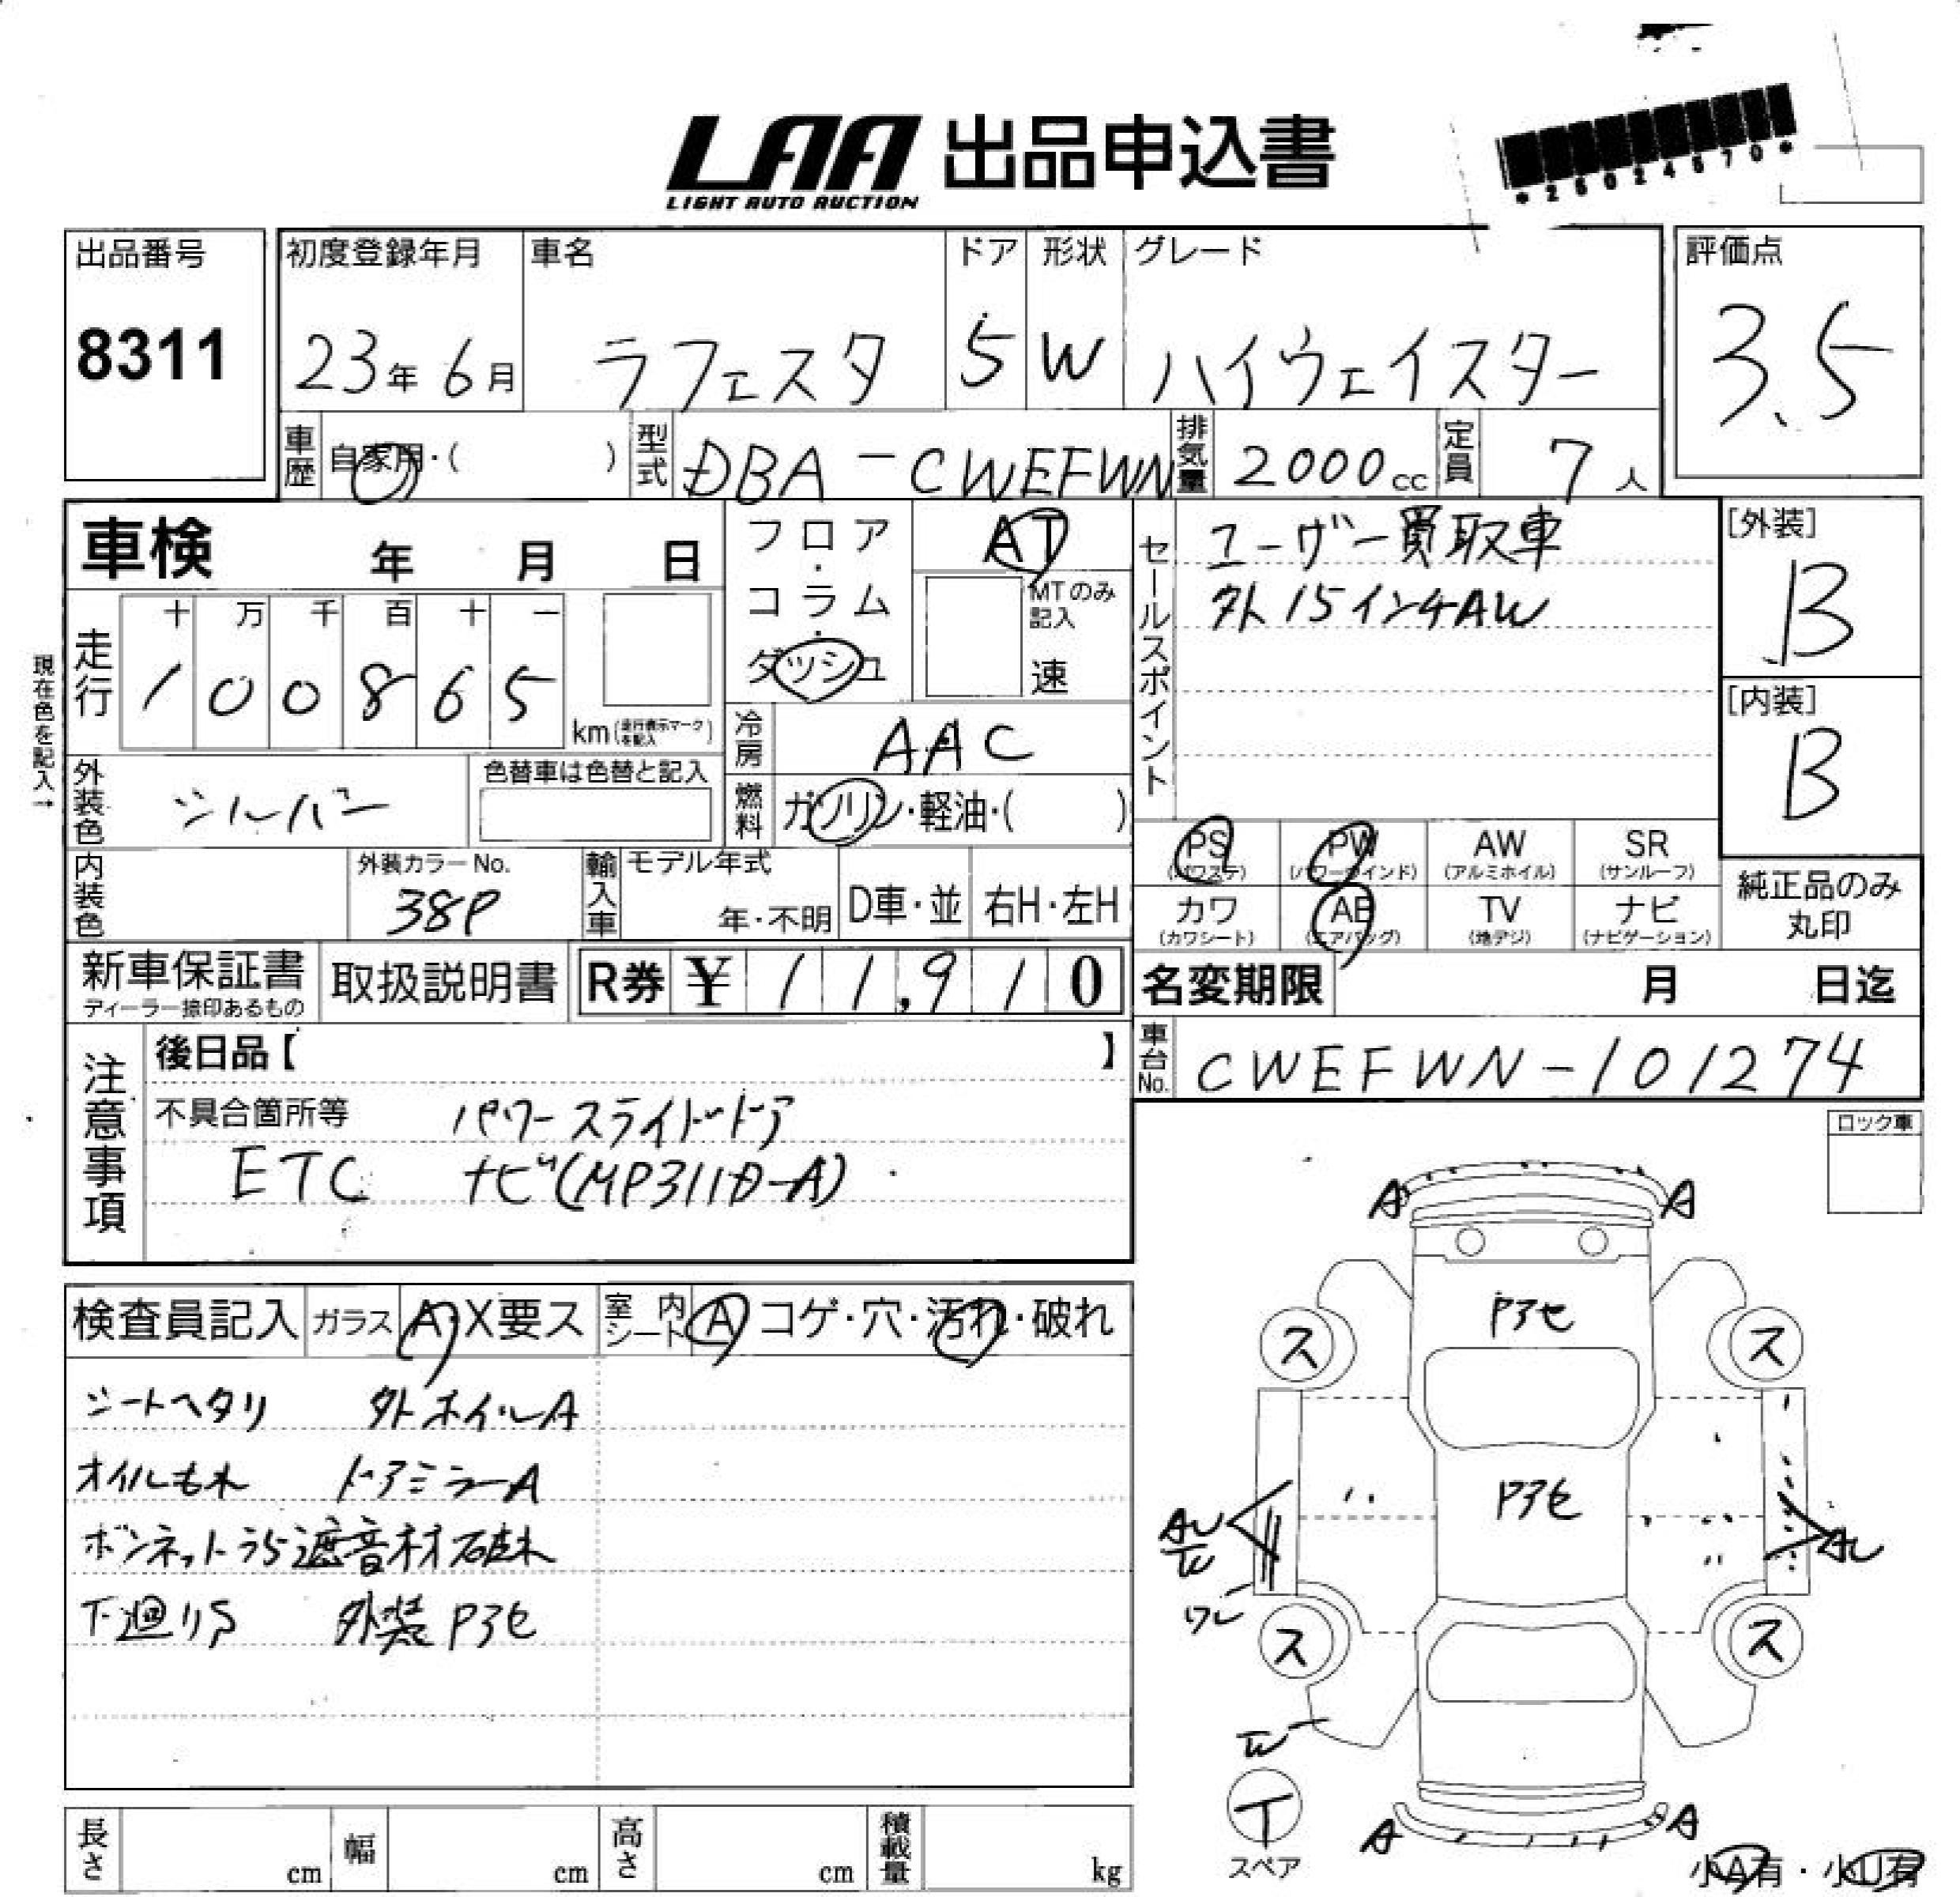 LAA 出品申込書
LIGHT AUTO AUCTION
*25024570*
出品番号 初度登録年月 車名 ドア 形状 グレード 評価点
8311 23年 6月 ラフェスタ 5 W ハイウェイスター 3.5
車歴 自家用・( ) 型式 DBA-CWEFWN 排気量 2000cc 定員 7人
車検 年 月 日
フロア・コラム・ダッシュ AT
MTのみ記入 速
セールスポイント
ユーザー買取車
外15インチAW
[外装]
B
[内装]
B
現在色を記入→
走行 十 万 千 百 十 一
1 0 0 8 6 5 km(走行表示マークを記入)
冷房 AAC
外装色 シルバー 色替車は色替と記入
燃料 ガソリン・軽油・( )
PS (パワステ) PW (パワーウインド) AW (アルミホイル) SR (サンルーフ)
カワ (カワシート) AB (エアバッグ) TV (地デジ) ナビ (ナビゲーション)
純正品のみ
丸印
内装色 外装カラーNo. 38P
輸入車 モデル年式 年・不明 D車・並 右H・左H
新車保証書 ディーラー捺印あるもの 取扱説明書 R券 ¥ 11,910
名変期限 月 日迄
車台No. CWEFWN-101274
注意事項
後日品【 】
不具合箇所等 パワースライドドア
ETC ナビ(MP311D-A)
ロック車
検査員記入 ガラス A・X要ス 室内シート A コゲ・穴・汚れ・破れ
シートヘタリ 外ホイルA
オイルもれ ドアミラーA
ボンネットうら遮音材破れ
下廻りS 外装Pアセ
A A
Pアセ
ス ス
Pアセ
AU
ス ス
T
スペア
A A
小A有・小U有
長さ cm 幅 cm 高さ cm 積載量 kg